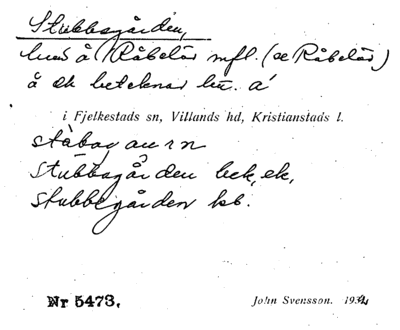 Stubbagården,
hus å Råbelöv mfl. (se Råbelöv)
å ek betecknar hu. á
i Fjelkestads sn, Villands hd, Kristianstads l.
Stubbagården bek, ek,
Stubbegården kb.
Nr 5473.
John Svensson. 1932